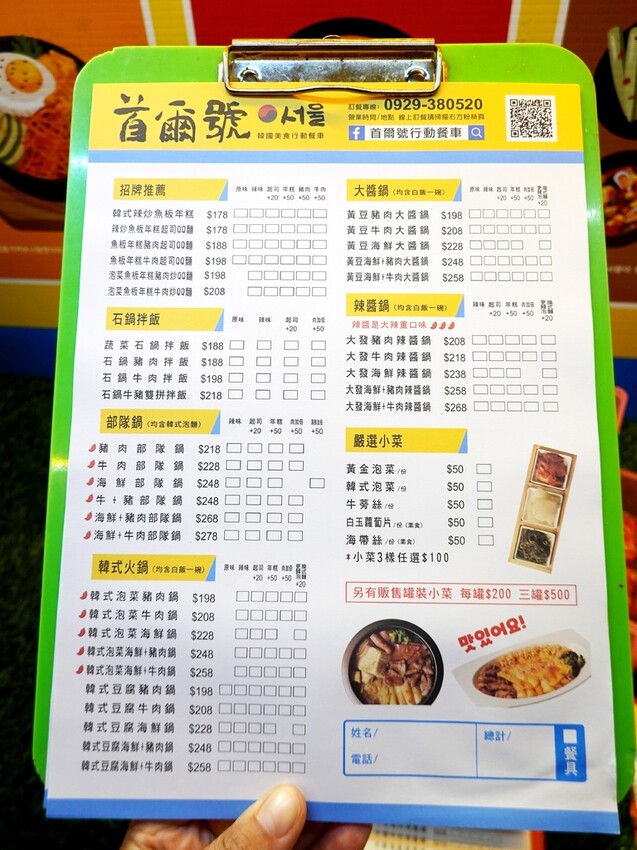 首爾號 서울
韓國美食行動餐車
訂餐專線: 0929-380520
營業時間/地點 線上訂餐請掃描右方粉絲頁
f 首爾號行動餐車
招牌推薦 原味 辣味 起司+20 年糕+50 豬肉+50 牛肉+50
韓式辣炒魚板年糕 $178
辣炒魚板年糕起司QQ麵 $178
魚板年糕豬肉起司QQ麵 $188
魚板年糕牛肉起司QQ麵 $198
泡菜魚板年糕豬肉炒QQ麵 $198
泡菜魚板年糕牛肉炒QQ麵 $208
石鍋拌飯 原味 辣味 起司+20 肉加倍+50
蔬菜石鍋拌飯 $188
石鍋豬肉拌飯 $188
石鍋牛肉拌飯 $198
石鍋牛豬雙拼拌飯 $218
部隊鍋(均含韓式泡麵) 辣味 起司+20 年糕+50 肉加倍+50 +50
豬肉部隊鍋 $218
牛肉部隊鍋 $228
海鮮部隊鍋 $248
牛+豬部隊鍋 $248
海鮮+豬肉部隊鍋 $268
海鮮+牛肉部隊鍋 $278
韓式火鍋(均含白飯一碗) 原味 辣味 起司+20 年糕+50 肉加倍+50 +20
韓式泡菜豬肉鍋 $198
韓式泡菜牛肉鍋 $208
韓式泡菜海鮮鍋 $228
韓式泡菜海鮮+豬肉鍋 $248
韓式泡菜海鮮+牛肉鍋 $258
韓式豆腐豬肉鍋 $198
韓式豆腐牛肉鍋 $208
韓式豆腐海鮮鍋 $228
韓式豆腐海鮮+豬肉鍋 $248
韓式豆腐海鮮+牛肉鍋 $258
大醬鍋(均含白飯一碗) 原味 辣味 起司+20 年糕+50 肉加倍+50 +20
黃豆豬肉大醬鍋 $198
黃豆牛肉大醬鍋 $208
黃豆海鮮大醬鍋 $228
黃豆海鮮+豬肉大醬鍋 $248
黃豆海鮮+牛肉大醬鍋 $258
辣醬鍋(均含白飯一碗) 辣味 起司+20 年糕+50 肉加倍+50 +20
辣醬是大辣重口味
大發豬肉辣醬鍋 $208
大發牛肉辣醬鍋 $218
大發海鮮辣醬鍋 $238
大發海鮮+豬肉辣醬鍋 $258
大發海鮮+牛肉辣醬鍋 $268
嚴選小菜
黃金泡菜/份 $50
韓式泡菜/份 $50
牛蒡絲/份 $50
白玉蘿蔔片/份(素食) $50
海帶絲/份(素食) $50
*小菜3樣任選$100
另有販售罐裝小菜 每罐$200 三罐$500
맛있어요!
姓名/
電話/
總計/
餐具